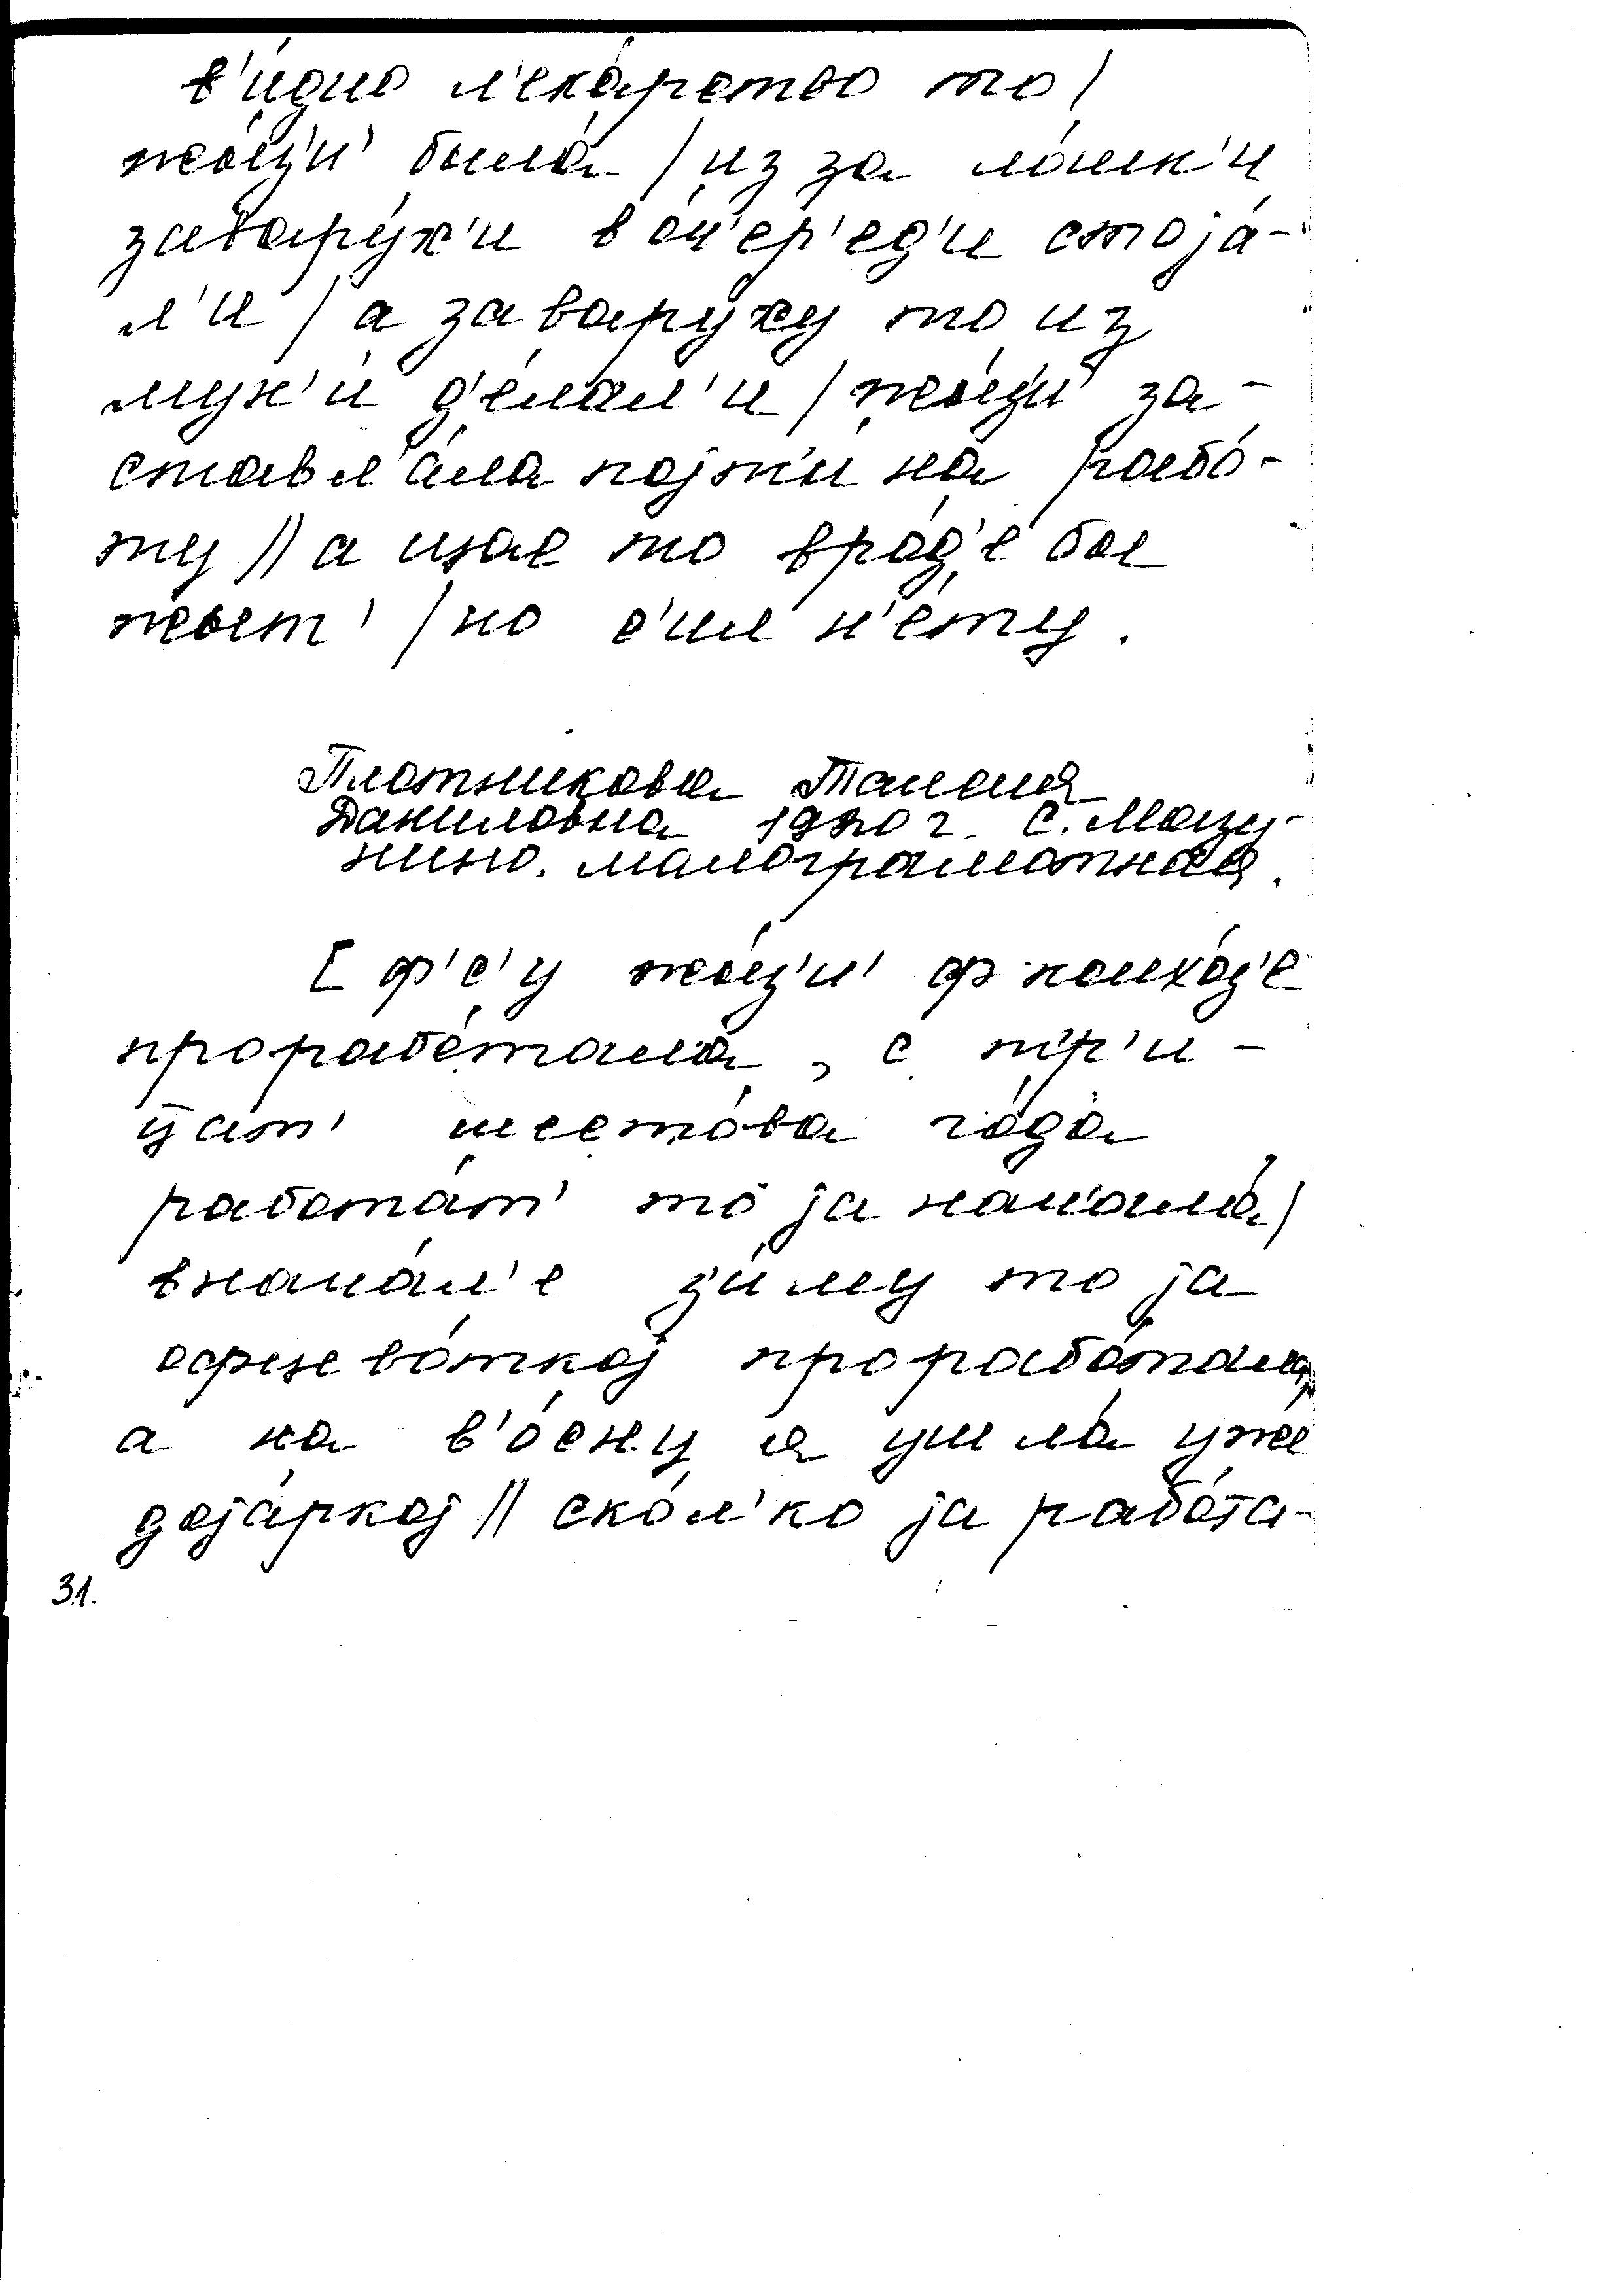 в'и́дно л'ека́рство то /
жы́з'н' была́ / из за ло́шк'и
завару́х'и в о́ч'ер'ед'и стоjа́-
л'и / а завару́ху то из
мук'и́ д'е́лал'и / жы́з'н' за-
ставл'а́ла поjт'и́ на рабо́-
ту // а щас то врод'е́ бы
жыт' / но с'ил н'е́ту.
Плотникова Таисия
Даниловна 1920 г. с. Мазу-
нино. малограмотная.
[ ф'с'у жы́з'н' ф колхо́з'е
прорабо́тала, с тр'и-
цат' шесто́ва го́да
рабо́тат' то jа начала́ /
внача́л'е з'и́му то jа
осфежева́ткоj прорабо́тала,
а на в'о́сну я ушла́ уже́
доjа́ркоj // ско́л'ко jа рабо́та-
31.